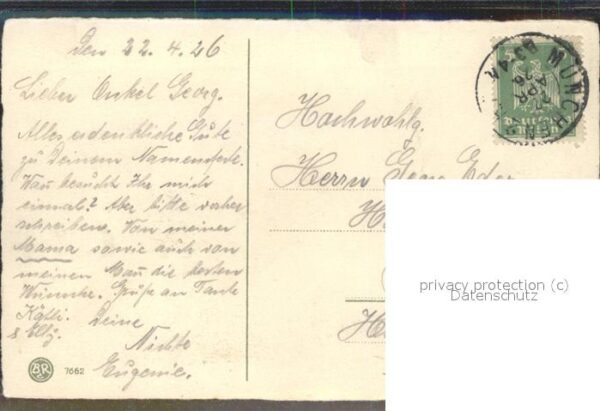 Den 22.4.26
Lieber Onkel Georg.
Alles erdenkliche Gute
zu Deinem Namensfeste.
Wan besucht Ihr mich
einmal? Aber bitte vorher
schreiben. Von meiner
Mama sowie auch von
meinen Man die besten
Wünsche. Grüße an Tante
Käthi.
Deine
Nichte
Eugenie.
BR
7662
Hochwohlg.
Herrn Georg Eder
MÜNCHEN
APR
Deutsches
Reich
privacy protection (c)
Datenschutz